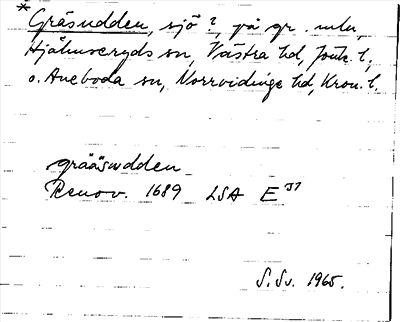 * Gräsudden, sjö?, på gr. mln
Hjälmseryds sn, Västra hd, Jönk. l.,
o. Aneboda sn, Norrvidinge hd, Kron. l.
grääsudden
Renov. 1689 LSA E 37
S. Sv. 1965.